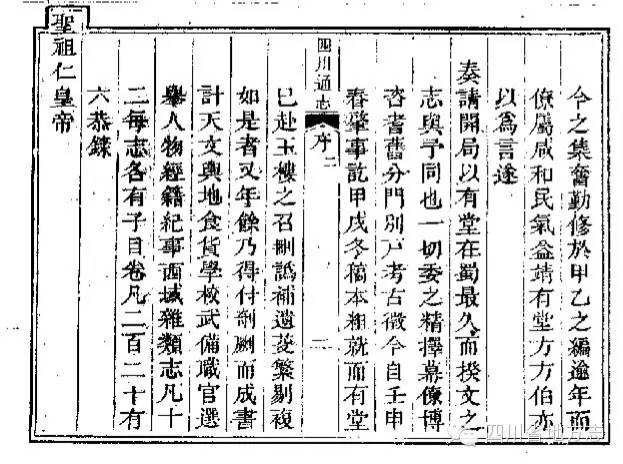 今之集奮勤修於甲乙之編逾年而
僚屬咸和民氣益靖有堂方方伯亦
以爲言遂
奏請開局以有堂在蜀最久而揆文之
志與予同也一切委之精擇幕僚博
咨耆舊分門別戶考古徵今自壬申
春肇事訖甲戌冬稿本粗就而有堂
四川通志 序 二
二
已赴玉樓之召刪譌補遺芟繁剔複
如是者又年餘乃得付剞劂而成書
計天文輿地食貨學校武備職官選
舉人物經籍紀事西域雜類志凡十
二每志各有子目卷凡二百二十有
六恭錄
聖祖仁皇帝
四川省地方志